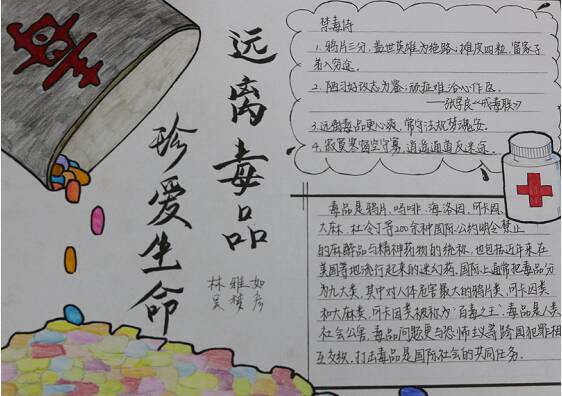 毒
远离毒品
珍爱生命
林雅如
吴梭彦
禁毒诗
1. 鸦片三分,盖世英雄为绝路,摊皮四粒,富家子
弟入穷途。
2. 陋习好改志为鉴,顽症难治心作医。
——张学良《戒毒联》
3. 远御毒品更心爽,常守法规梦魂安。
4.
毒品是鸦片、吗啡、海洛因、可卡因、
大麻、杜冷丁等200余种国际公约明令禁止
的麻醉品与精神药物的统称,也包括近年来在
美国等地流行起来的迷幻药,国际上通常把毒品分
为九大类,其中对人体危害最大的鸦片类,可卡因类
和大麻类,可卡因类被称为"百毒之王",毒品是人类
社会公害,毒品问题更与恐怖主义等跨国犯罪相
互交织,打击毒品是国际社会的共同任务。